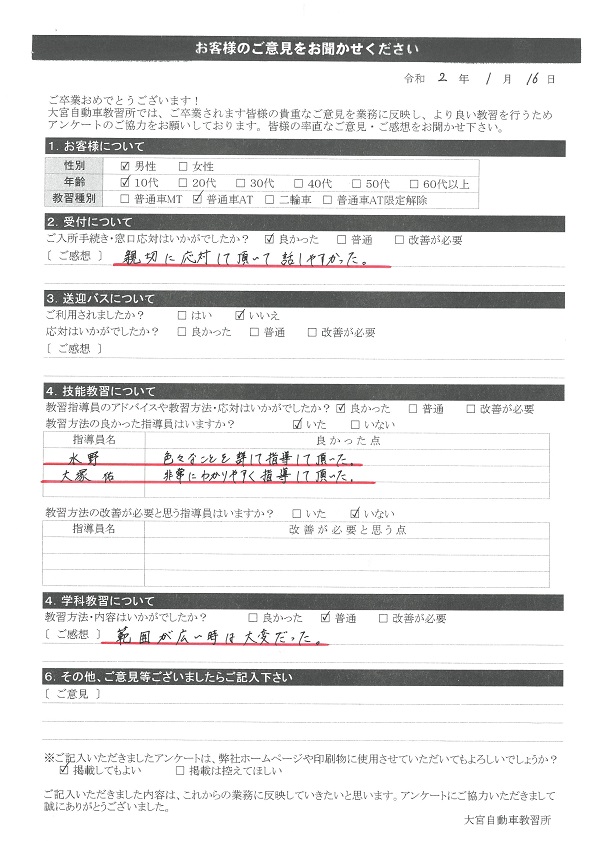 お客様のご意見をお聞かせください
令和 2 年 1 月 16 日
ご卒業おめでとうございます！
大宮自動車教習所では、ご卒業されます皆様の貴重なご意見を業務に反映し、より良い教習を行うため
アンケートのご協力をお願いしております。皆様の率直なご意見・ご感想をお聞かせ下さい。
1. お客様について
性別 ☑ 男性 □ 女性
年齢 ☑ 10代 □ 20代 □ 30代 □ 40代 □ 50代 □ 60代以上
教習種別 □ 普通車MT ☑ 普通車AT □ 二輪車 □ 普通車AT限定解除
2. 受付について
ご入所手続き・窓口応対はいかがでしたか？ ☑ 良かった □ 普通 □ 改善が必要
〔 ご感想 〕 親切に応対して頂いて話しやすかった。
3. 送迎バスについて
ご利用されましたか？ □ はい ☑ いいえ
応対はいかがでしたか？ □ 良かった □ 普通 □ 改善が必要
〔 ご感想 〕
4. 技能教習について
教習指導員のアドバイスや教習方法・応対はいかがでしたか？ ☑ 良かった □ 普通 □ 改善が必要
教習方法の良かった指導員はいますか？ ☑ いた □ いない
指導員名 良かった点
水野 色々なことを 指導して頂いた。
大塚 佑 非常にわかりやすく指導して頂いた。
教習方法の改善が必要と思う指導員はいますか？ □ いた ☑ いない
指導員名 改善が必要と思う点
4. 学科教習について
教習方法・内容はいかがでしたか？ □ 良かった ☑ 普通 □ 改善が必要
〔 ご感想 〕 範囲が広い時は大変だった。
6. その他、ご意見等ございましたらご記入下さい
〔 ご意見 〕
※ご記入いただきましたアンケートは、弊社ホームページや印刷物に使用させていただいてもよろしいでしょうか？
☑ 掲載してもよい □ 掲載は控えてほしい
ご記入いただきました内容は、これからの業務に反映していきたいと思います。アンケートにご協力いただきまして
誠にありがとうございました。
大宮自動車教習所